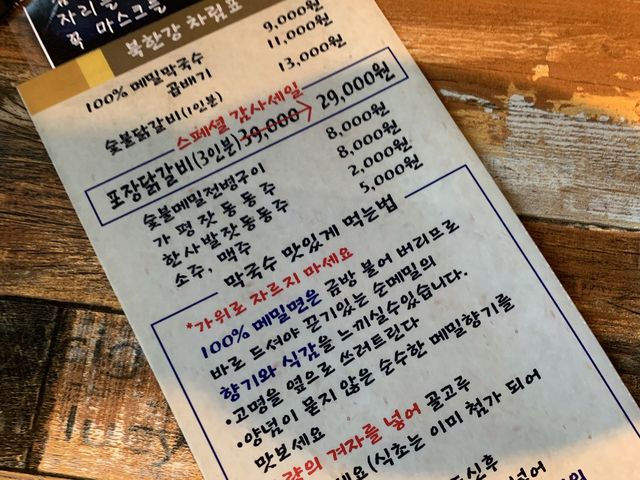 자리를
꼭 마스크를
북한강 차림표
100% 메밀막국수 9,000원
곱배기 11,000원
숯불닭갈비(1인분) 13,000원
스페셜 감사세일
포장닭갈비(3인분) 39,000 > 29,000원
숯불메밀전병구이 8,000원
가평잣동동주 8,000원
한사발잣동동주 2,000원
소주, 맥주 5,000원
막국수 맛있게 먹는법
*가위로 자르지 마세요
100% 메밀면은 금방 불어 버리므로
바로 드셔야 끈기있는 순메밀의
향기와 식감을 느끼실수있습니다.
•고명을 옆으로 쓰러트린다
•양념이 묻지 않은 순수한 메밀향기를
맛보세요
량의 겨자를 넣어 골고루
세요(식초는 이미 첨가 되어
드신후
넣어